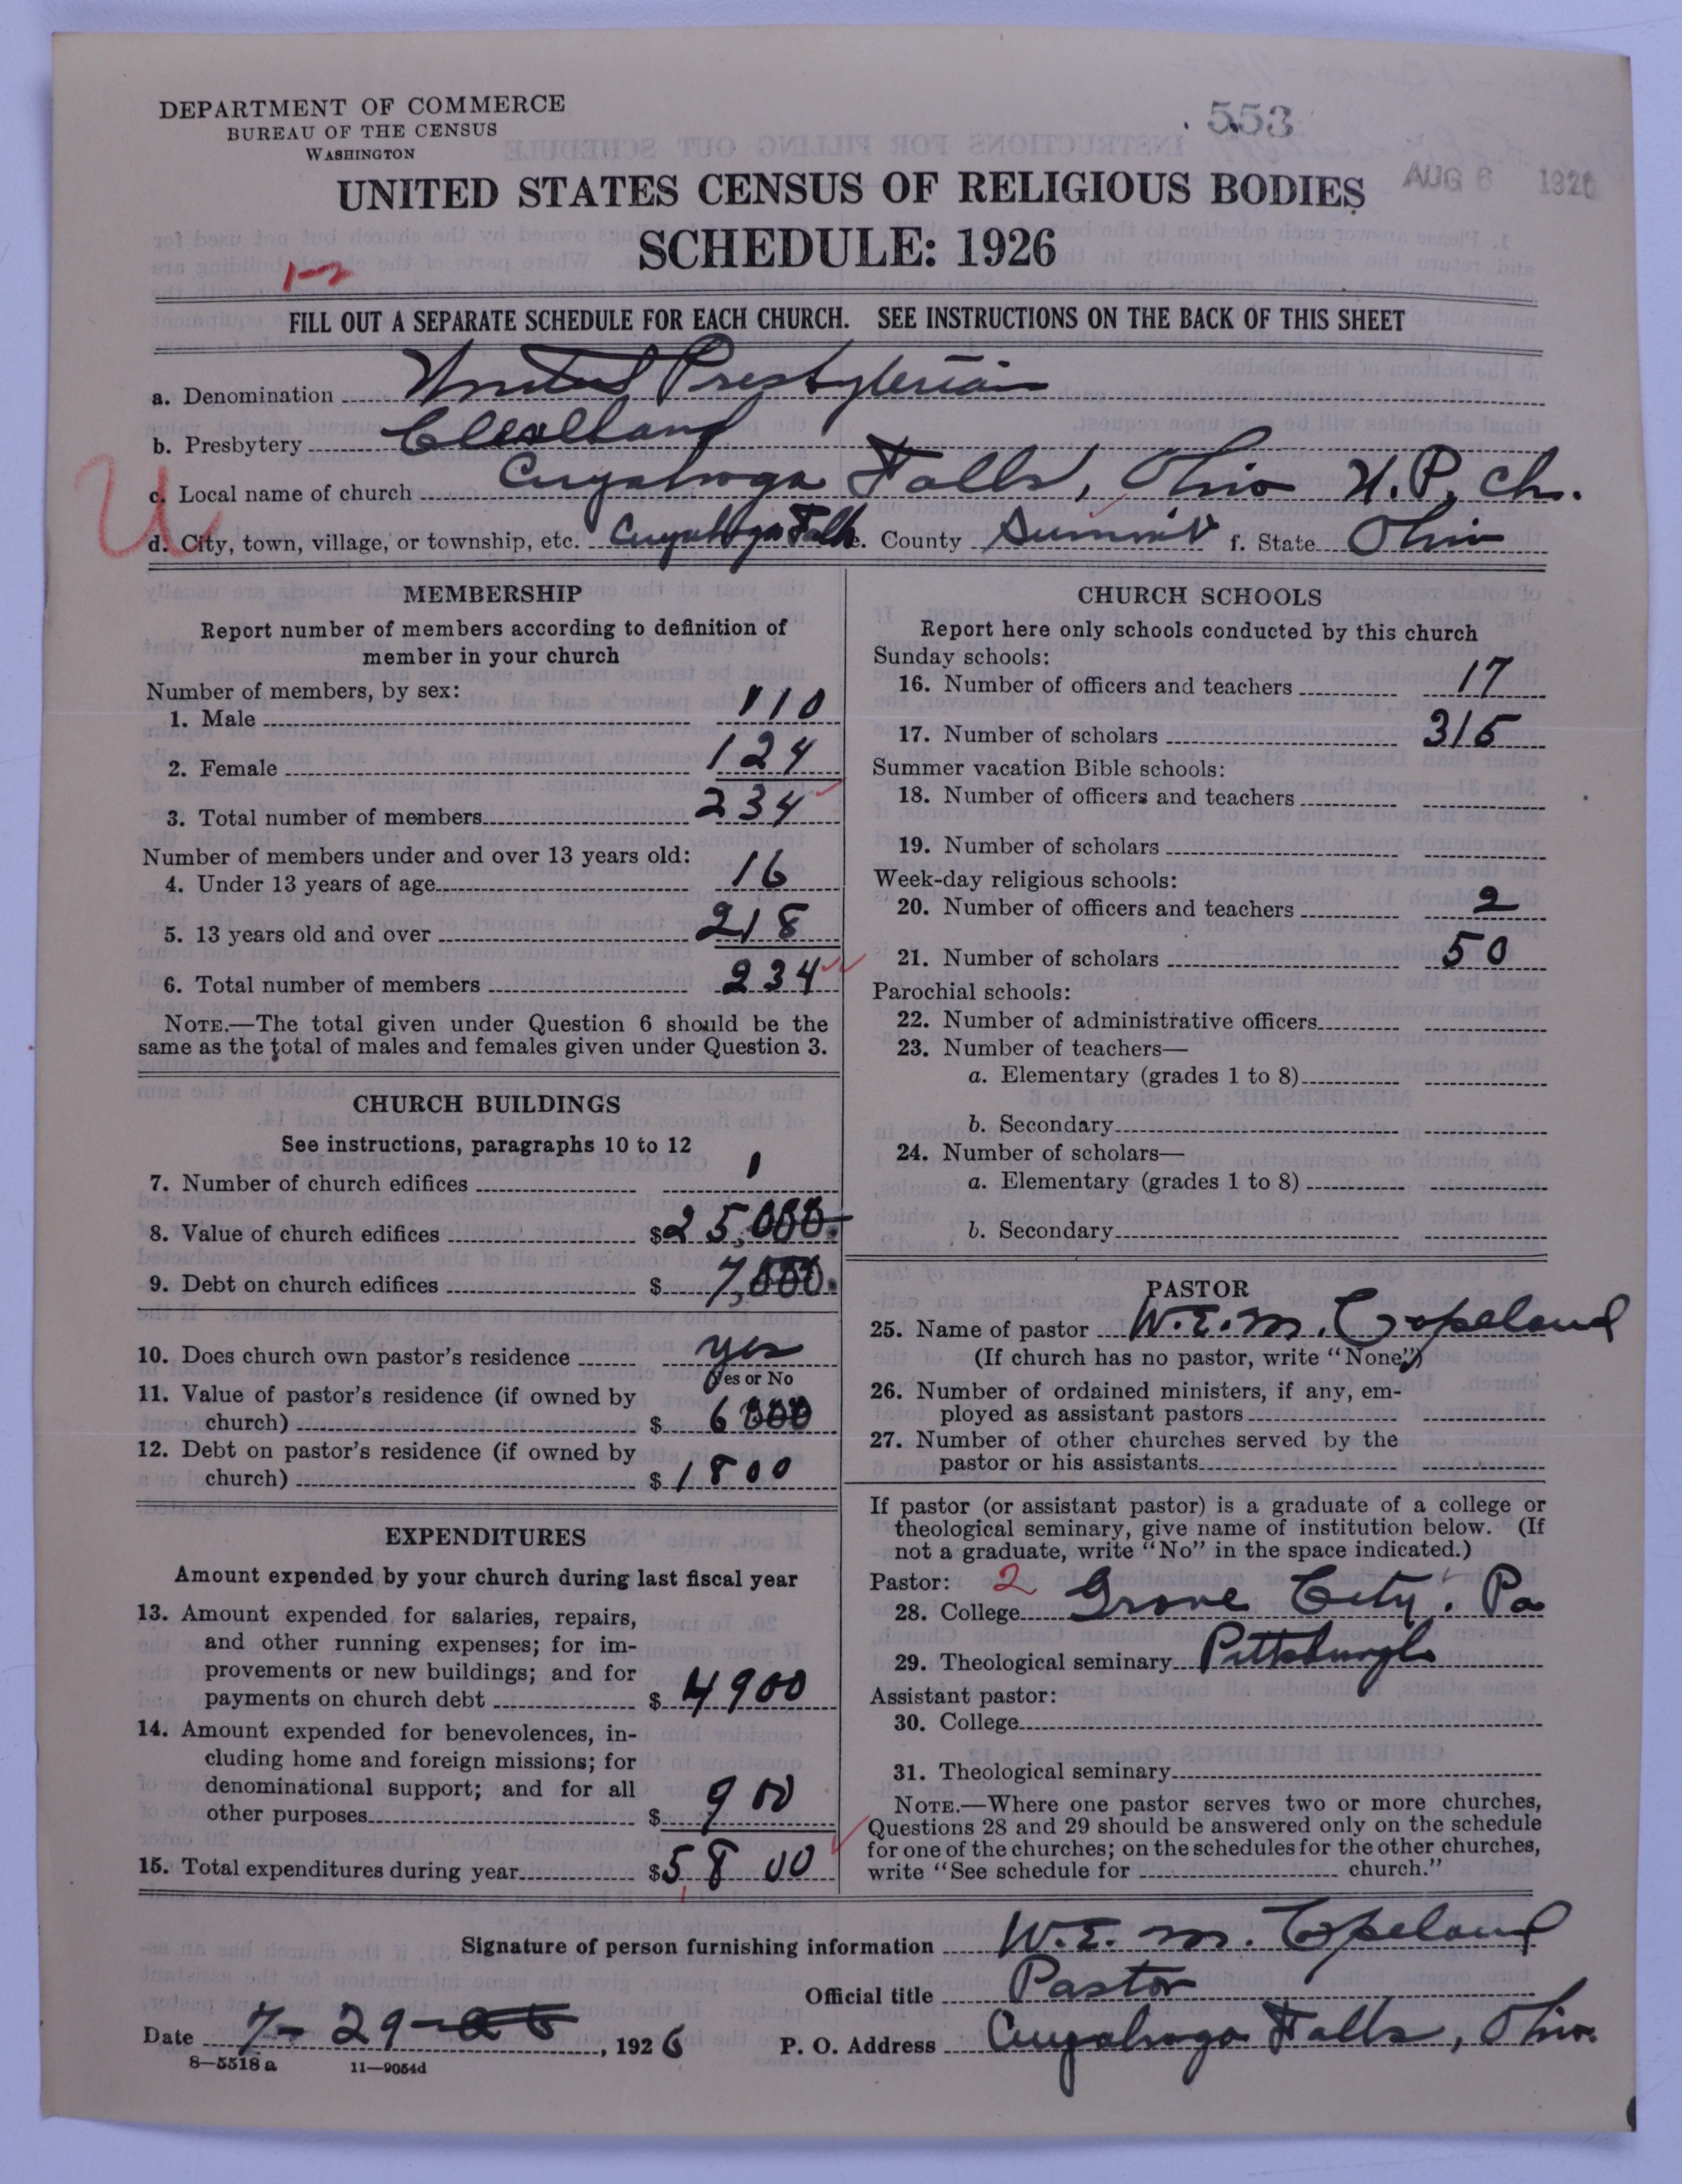 DEPARTMENT OF COMMERCE
BUREAU OF THE CENSUS
WASHINGTON
553
AUG 6 1926
UNITED STATES CENSUS OF RELIGIOUS BODIES
SCHEDULE: 1926
1-2
FILL OUT A SEPARATE SCHEDULE FOR EACH CHURCH. SEE INSTRUCTIONS ON THE BACK OF THIS SHEET
a. Denomination United Presbyterian
b. Presbytery Cleveland
c. Local name of church Cuyahoga Falls, Ohio U.P. Ch.
U
d. City, town, village, or township, etc. Cuyahoga Falls e. County Summit f. State Ohio
MEMBERSHIP
Report number of members according to definition of
member in your church
Number of members, by sex:
1. Male 110
2. Female 124
3. Total number of members 234
Number of members under and over 13 years old:
4. Under 13 years of age 16
5. 13 years old and over 218
6. Total number of members 234
NOTE.—The total given under Question 6 should be the
same as the total of males and females given under Question 3.
CHURCH BUILDINGS
See instructions, paragraphs 10 to 12
7. Number of church edifices 1
8. Value of church edifices $25,000.
9. Debt on church edifices $7,000.
10. Does church own pastor's residence yes
Yes or No
11. Value of pastor's residence (if owned by
church) $6000
12. Debt on pastor's residence (if owned by
church) $1800
EXPENDITURES
Amount expended by your church during last fiscal year
13. Amount expended for salaries, repairs,
and other running expenses; for im-
provements or new buildings; and for
payments on church debt $4900
14. Amount expended for benevolences, in-
cluding home and foreign missions; for
denominational support; and for all
other purposes $900
15. Total expenditures during year $5800
CHURCH SCHOOLS
Report here only schools conducted by this church
Sunday schools:
16. Number of officers and teachers 17
17. Number of scholars 315
Summer vacation Bible schools:
18. Number of officers and teachers
19. Number of scholars
Week-day religious schools:
20. Number of officers and teachers 2
21. Number of scholars 50
Parochial schools:
22. Number of administrative officers
23. Number of teachers—
a. Elementary (grades 1 to 8)
b. Secondary
24. Number of scholars—
a. Elementary (grades 1 to 8)
b. Secondary
PASTOR
25. Name of pastor W.E.M. Copeland
(If church has no pastor, write "None")
26. Number of ordained ministers, if any, em-
ployed as assistant pastors
27. Number of other churches served by the
pastor or his assistants
If pastor (or assistant pastor) is a graduate of a college or
theological seminary, give name of institution below. (If
not a graduate, write "No" in the space indicated.)
Pastor: 2
28. College Grove City. Pa
29. Theological seminary Pittsburgh
Assistant pastor:
30. College
31. Theological seminary
NOTE.—Where one pastor serves two or more churches,
Questions 28 and 29 should be answered only on the schedule
for one of the churches; on the schedules for the other churches,
write "See schedule for church."
Signature of person furnishing information W.E.M. Copeland
Official title Pastor
Date 7-29-26, 1926 P. O. Address Cuyahoga Falls, Ohio.
8—5518a 11—9054d